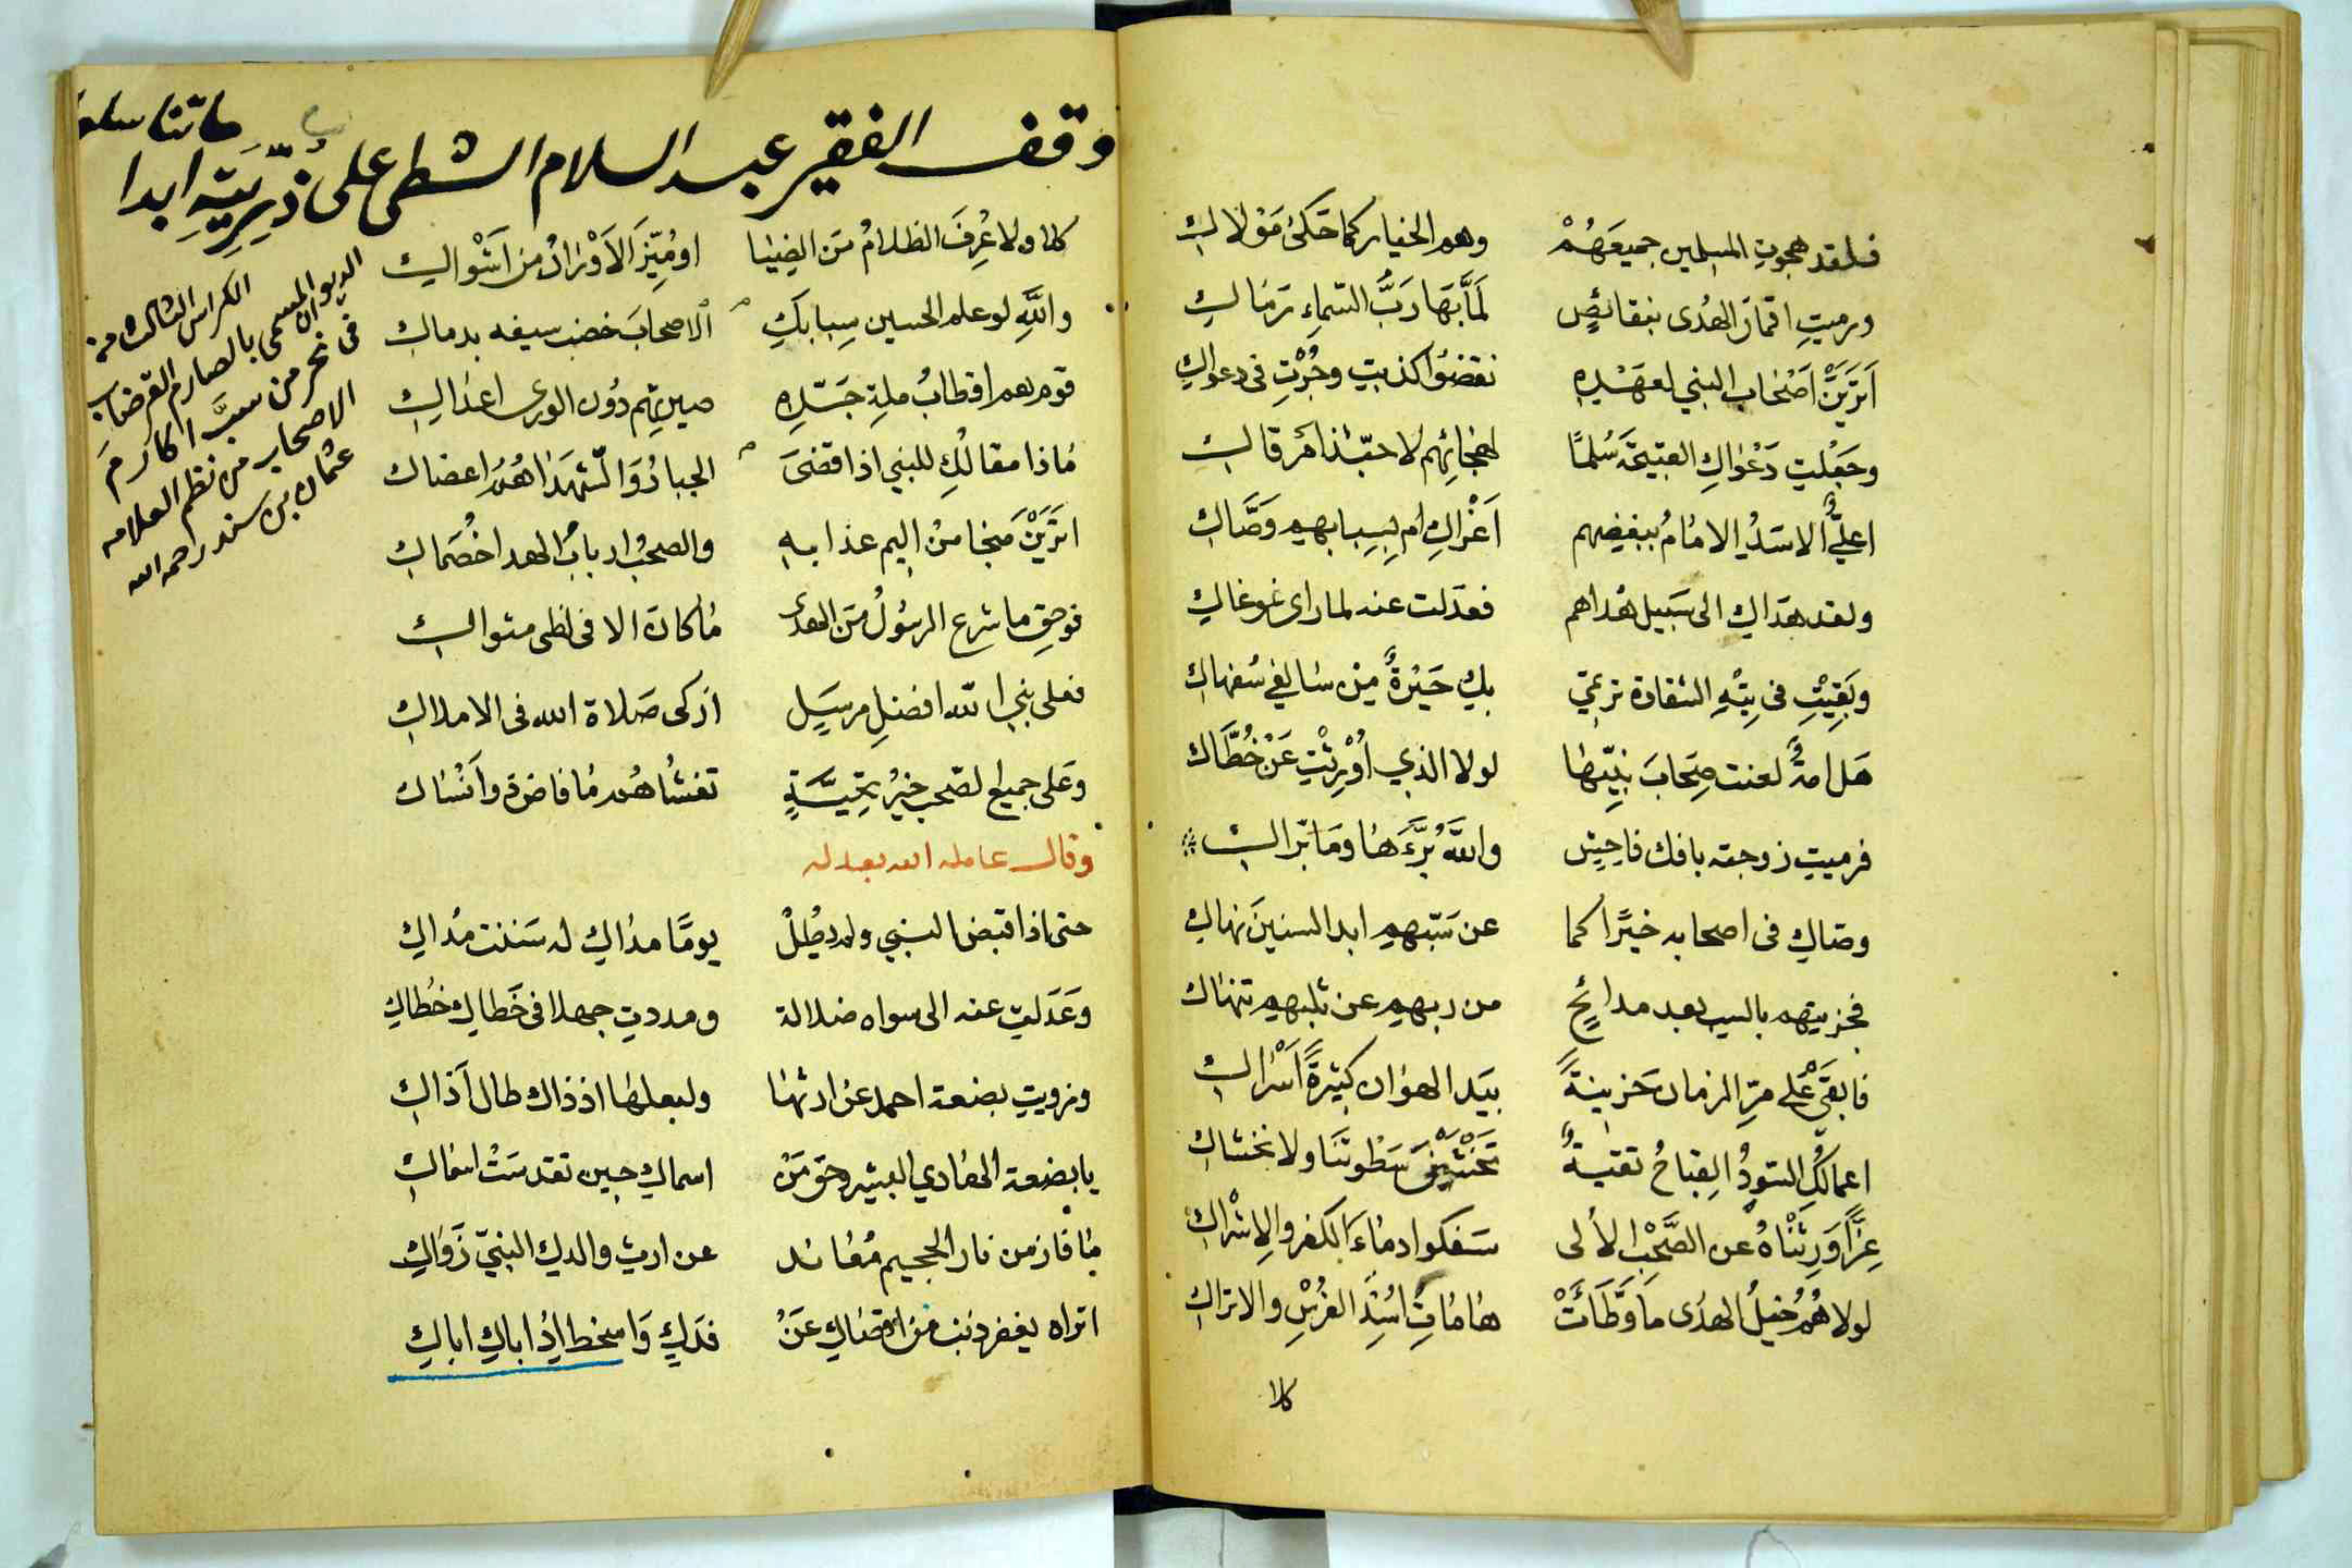 فلقد هجوتِ المسلمين جميعَهُمْ وهم الخيار كما حَكىٰ مَوْلاكِ
ورميتِ اقمارَ الهُدى بنقائصٍ لَمَّا بَهَا رَبُّ السَّماءِ رَمَاكِ
اَتَرَيْنَ اَصْحَابَ النبي لعَهْدِهِ نقضُوا كذبتِ وجُرْتِ في دعواكِ
وجَعْلتِ دَعْوَاكِ القبيحَةَ سُلَّمًا لهجائهم لا حبّذا مَرقاكِ
اعليٌّ الاسَدُ الامَامُ ببغضِهم اَغْراكِ ام بِسِبابهم وَصَّاكِ
ولقد هَدَاكِ الى سَبيل هُداهم فعدَلت عنه لما رأى غوغاكِ
وبَقِيْتِ في تِيْهِ الشقاوة ترتمي بكِ حَيْرةٌ من سُفهاكِ
هَل امةٌ لعنت صِحَابَ نبيّها لولا الذي أُوْرِثْتِ عَنْ خُطَّاكِ
فرميتِ زوجته بافك فاحِشٍ واللّٰهُ بَرَّءَهَا ومَا بَرّاكِ
وصّاكِ في اصحابه خيرًا كما عن سَبّهم ابد السنينَ نهاكِ
فجزيتهم بالسب بعد مدائحٍ من ربهم عن ثلبهم تنهاكِ
فابقَيْ عَلى مرّ الزمان حَزينةً بيَدِ الهوان كثيرةً اَسْراكِ
اعمالكِ السودُ القباحُ تقيةٌ تَخْشَيْنَ سَطْوتَنَا ولا نخشاكِ
عِزًّا وَرِثْنَاهُ عن الصَّحْبِ الأُلى سَفكوا دمَاءَ الكفر والاِشْراكِ
لولا هُمُ خيلُ الهدُى مَا وَطَّأَتْ هَامَاتِ اُسْدِ الفُرْسِ والاتراكِ
كلا
وقف الفقير عبد السلام الشطي على ذرّيتِهِ ابدا
الكراس الثالث من
الديوان المسمى بالصارم القرضاب
في نحر من سبَّ اكارمَ
الاصحاب من نظم العلامه
عثمان بن سند رحمه الله
كلا ولا عُرِفَ الظلامُ مَن الضِيَا او مُيِّزَ الاَوْرَادُ من اَشْواكِ
واللّٰهِ لو علم الحسين سِبابَكِ الاصحابَ خضب سيفه بدماكِ
قوم هم اقطابُ ملةِ جَدِّهِ صيرتِهم دُون الورى اعداكِ
مَاذا مقالُكِ للنبي اذا قضىَ الجبارُ وَالشهَدَا هُمُ اعضاك
اتَرَيْنَ مَنجا مِن اليم عذابه والصحبُ اربابُ الهدا خُصَماكِ
فوحقِ ما شرع الرسُولُ مَن الهدى مَا كانَ الا في لظى مثواكِ
فعلى نبي اللّٰه افضلِ مرسَلٍ ازكى صَلاة الله في الاملاكِ
وعَلى جميع الصّحب خيرُ تحِيَّةٍ تغشاهُم مَا فاض
وقال عامله الله بعدله
حتى اذا قبض النبي ولم يطُلْ يومًا مدَاكِ له سَننت مُداكِ
وعَدَلتِ عنه الى سواه ضلالة ومددتِ جهلا في خَطاكِ خُطاكِ
وزويتِ بضعة احمد عن ارثهَا ولبعلهَا اذ ذاك طال اَذاكِ
يا بضعة الهَادي البشير وحق مَنْ اسماكِ حين تقدسَتْ اسماكِ
مَا فاز من نار الجحيم مُعَاند عن ارثِ والدكِ النبيّ زَوَاكِ
اتراه يغفر ذنب من اقصاكِ عَنْ فدَكٍ وَاسخط اذْ اباكِ اباكِ